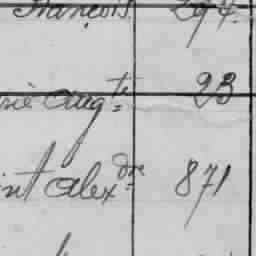 François 294
rie Augte 23
int Alexdre 871